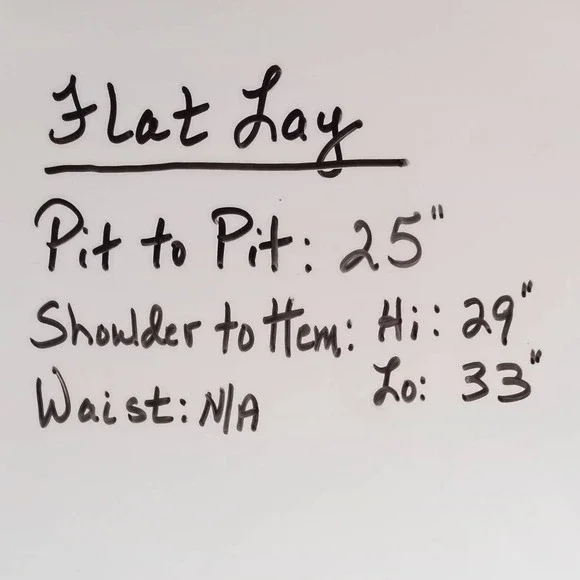 Flat Lay
Pit to Pit: 25"
Shoulder to Hem: Hi: 29"
Lo: 33"
Waist: N/A